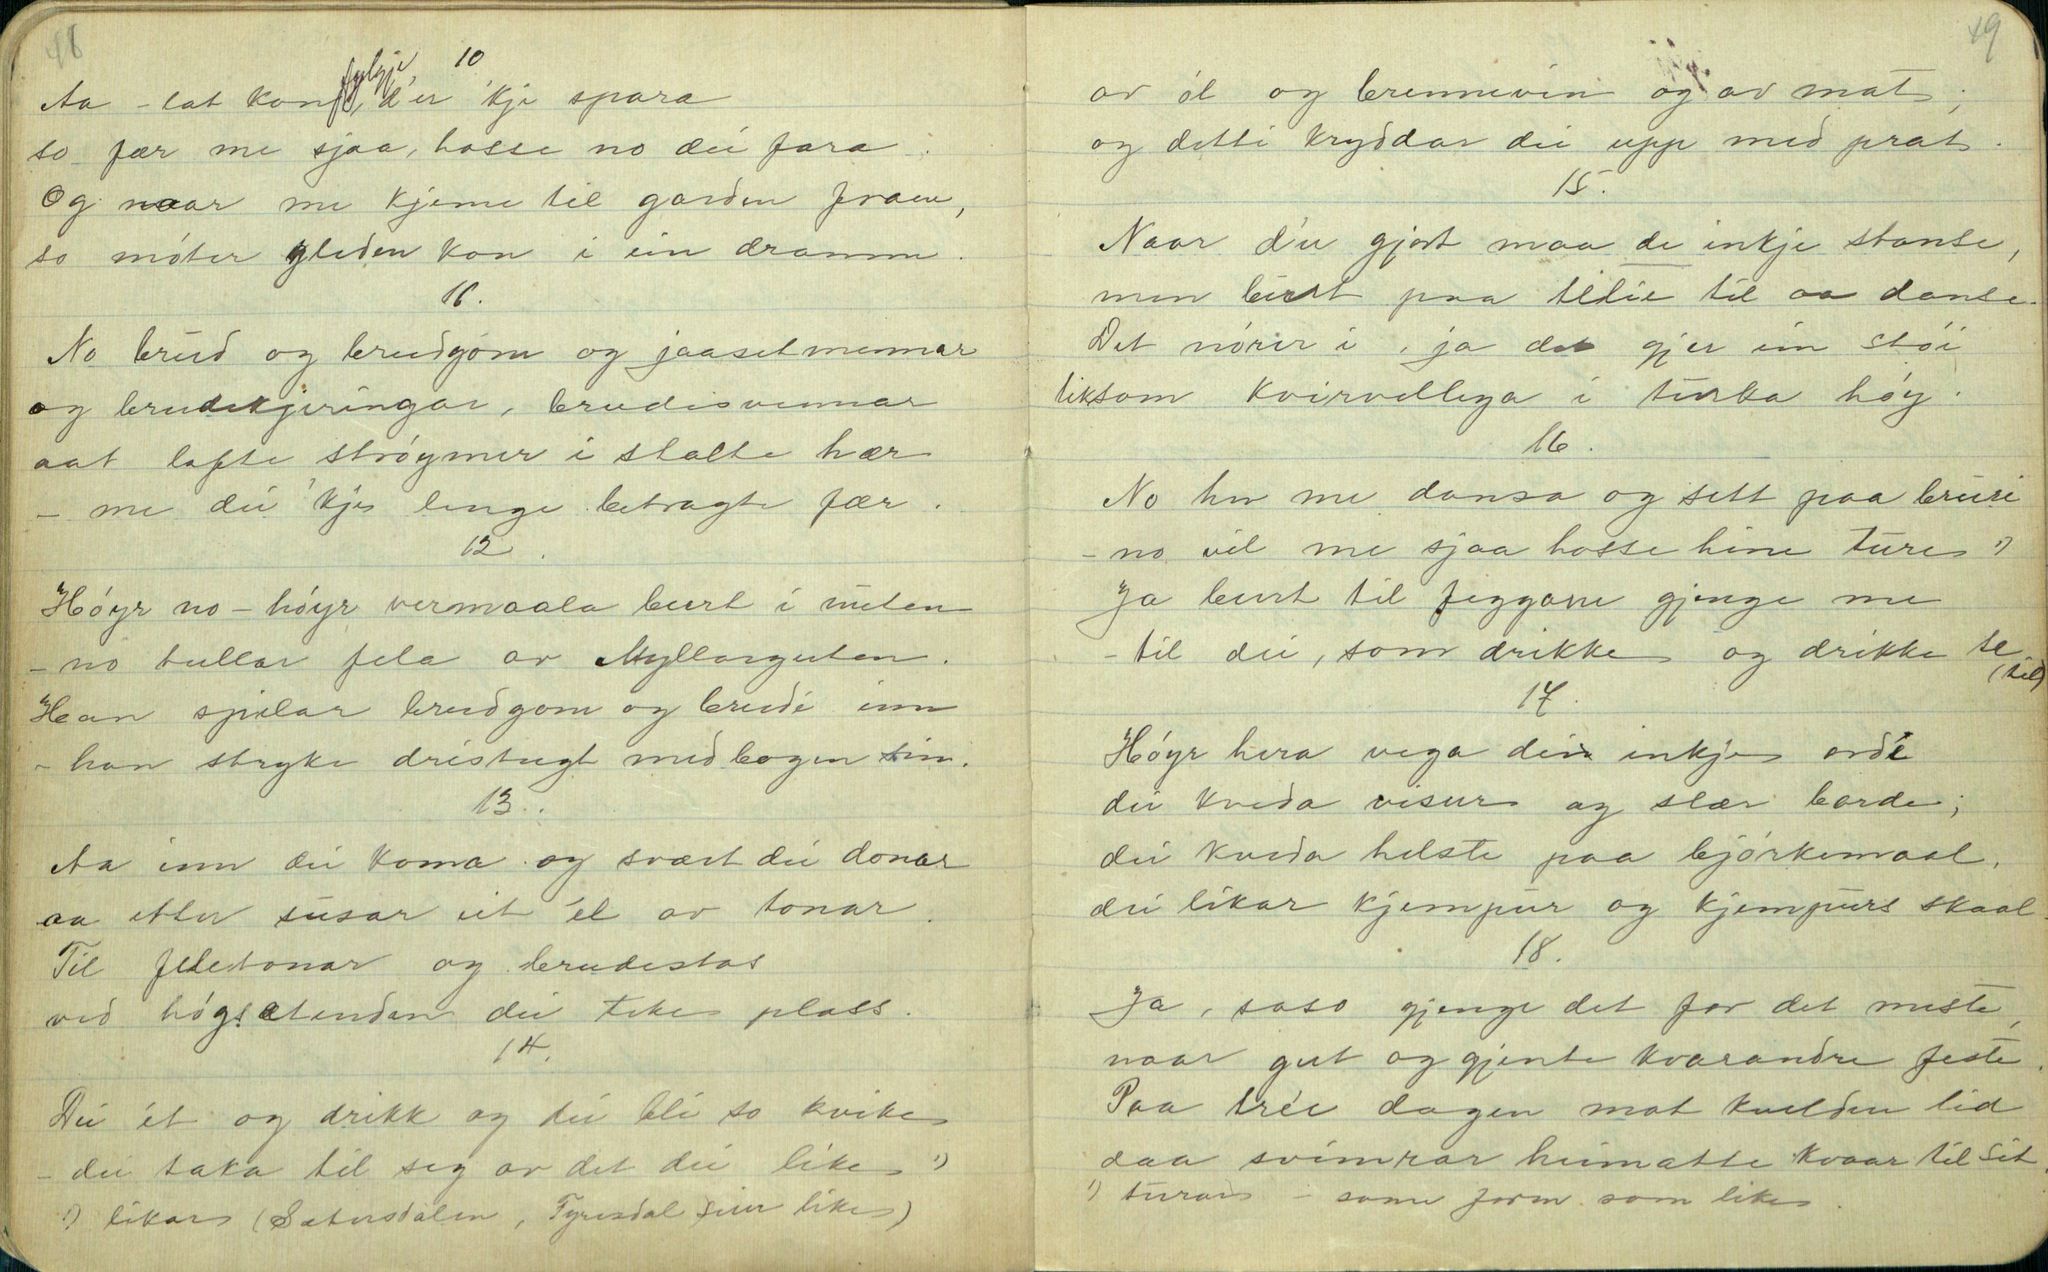 48
10
fylgje
Aa - lat kon, d'er 'kje spara
so fær me sjaa, hosse no dei fara.
Og naar me kjeme til garden fram,
so møter gleden kon i ein dramm.
11.
No brud og brudgom og jaasetmennar
og brudekjeringar, brudesvennar
aat lofte strøymer i stalte hær
- me dei 'kje lenge betragte fær.
12.
Høyr no - høyr vermaala burt i nuten
- no tullar fela av Myllarguten.
Han spelar brudgom og brudi inn
- han stryke dristugt med bogen sin.
13.
Aa inn dei koma og svært dei donar
aa etter susar eit el av tonar.
Til feletonar og brudestas
ved høgsætendan dei teke plass.
14.
Dei et og drikk og dei bli so kvike
- dei taka til seg av det dei like ¹)
¹) likar (Setersdalen, Tyresdal seier like)
49
av øl og brennevin og av mat;
og detti kryddar dei upp med prat.
15.
Naar d'er gjort maa de inkje stanse,
men burt paa tilie til aa danse.
Det nører i, ja det gjer ein støi
liksom kvirvellega i turka høy.
16.
No hev me dansa og sett paa bruri
- no vil me sjaa hosse hine ture ¹)
Ja burt til feggane gjenge me
- til dei, som drikke og drikke te
(til)
17.
Høyr hera vega dei inkje ordi
dei kveda visur og slær borde;
dei kveda helste paa bjørkemaal,
dei likar kjempur og kjempurs skaal.
18.
Ja, soso gjenge det for det meste,
naar gut og gjente kvarandre feste.
Paa tree dagen mot kvelden lid
daa svimrar heimatte kvaar til sit.
¹) turar - same form som like.